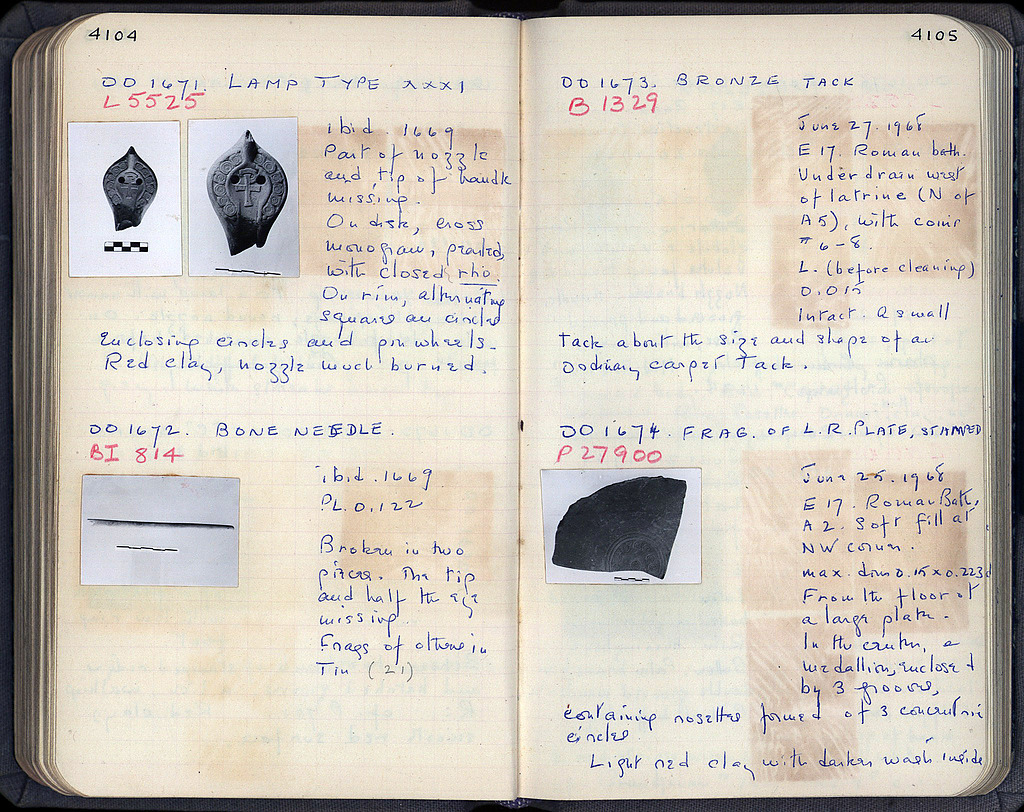 4104
OO 1671. LAMP TYPE XXXI
L 5525
ibid. 1669
Part of nozzle
and tip of handle
missing.
On disk, cross
monogram, pearled,
with closed rho.
On rim, alternating
squares and circles
enclosing circles and pinwheels.
Red clay, nozzle much burned.
OO 1672. BONE NEEDLE.
BI 814
ibid. 1669
PL. 0.122
Broken in two
pieces. The tip
and half the eye
missing.
Frags of others in
Tin (21)
4105
OO 1673. BRONZE TACK
B 1329
June 27. 1968
E 17. Roman bath.
Under drain west
of latrine (N of
A5), with coins
# 6-8.
L. (before cleaning)
0.015
Intact. A small
tack about the size and shape of an
ordinary carpet tack.
OO 1674. FRAG. OF L.R. PLATE, STAMPED
P 27900
June 25. 1968
E 17. Roman Bath,
A 2. Soft fill at
NW corner.
max. dim 0.15 x 0.223
From the floor of
a large plate.
In the center, a
medallion, enclosed
by 3 grooves,
containing rosettes formed of 3 concentric
circles.
Light red clay with darker wash inside